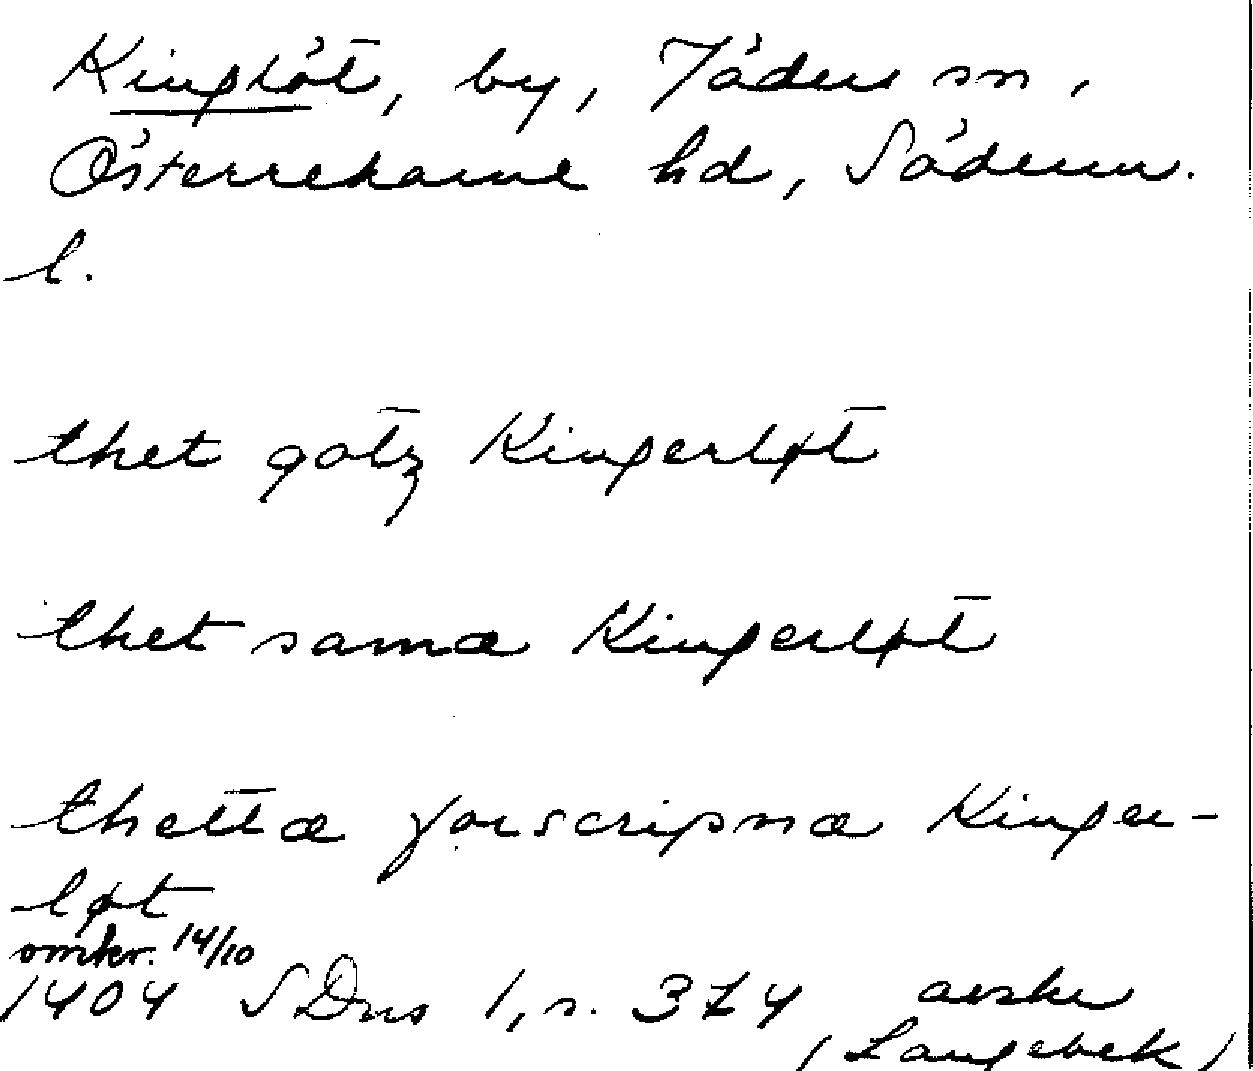 Kinglöt, by, Jäders sn,
Österrekarne hd, Söderm.
l.
thet gotz Kingerløt
thet samæ Kingerløt
thettæ forscripnæ Kinger-
løt
omkr. 14/10
1404 SDns 1, s. 374 avskr
(Langebek)